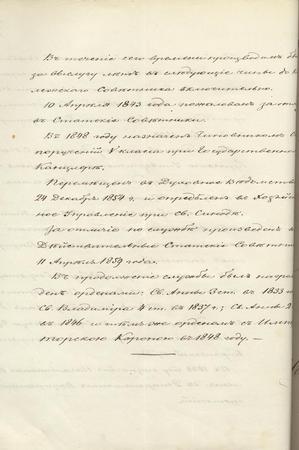 Въ теченіе сего времени производимъ бы
за выслугу лѣтъ въ слѣдующіе чины до Ко
лежскаго Совѣтника включительно.
10 Апрѣля 1843 года пожалованъ за от
въ Статскіе Совѣтники.
Въ 1848 году назначенъ Чиновникомъ
порученій V класса при Государственно
Канцлерѣ.
Перемѣщенъ въ Духовное Вѣдомств
24 Декабря 1854 г. и опредѣленъ въ Хозяй
ное Управленіе при Св. Синодѣ.
За отличіе по службѣ произведенъ въ
Дѣйствительные Статскіе Совѣтн
11 Апрѣля 1859 года.
Въ продолженіе службы былъ награ
денъ орденами: Св. Анны 3 ст. въ 1833
Св. Владиміра 4 ст. въ 1837 г.; Св. Анны 2
въ 1846 и тѣмъ же орденомъ съ Импе
торскою Короною въ 1848 году. —